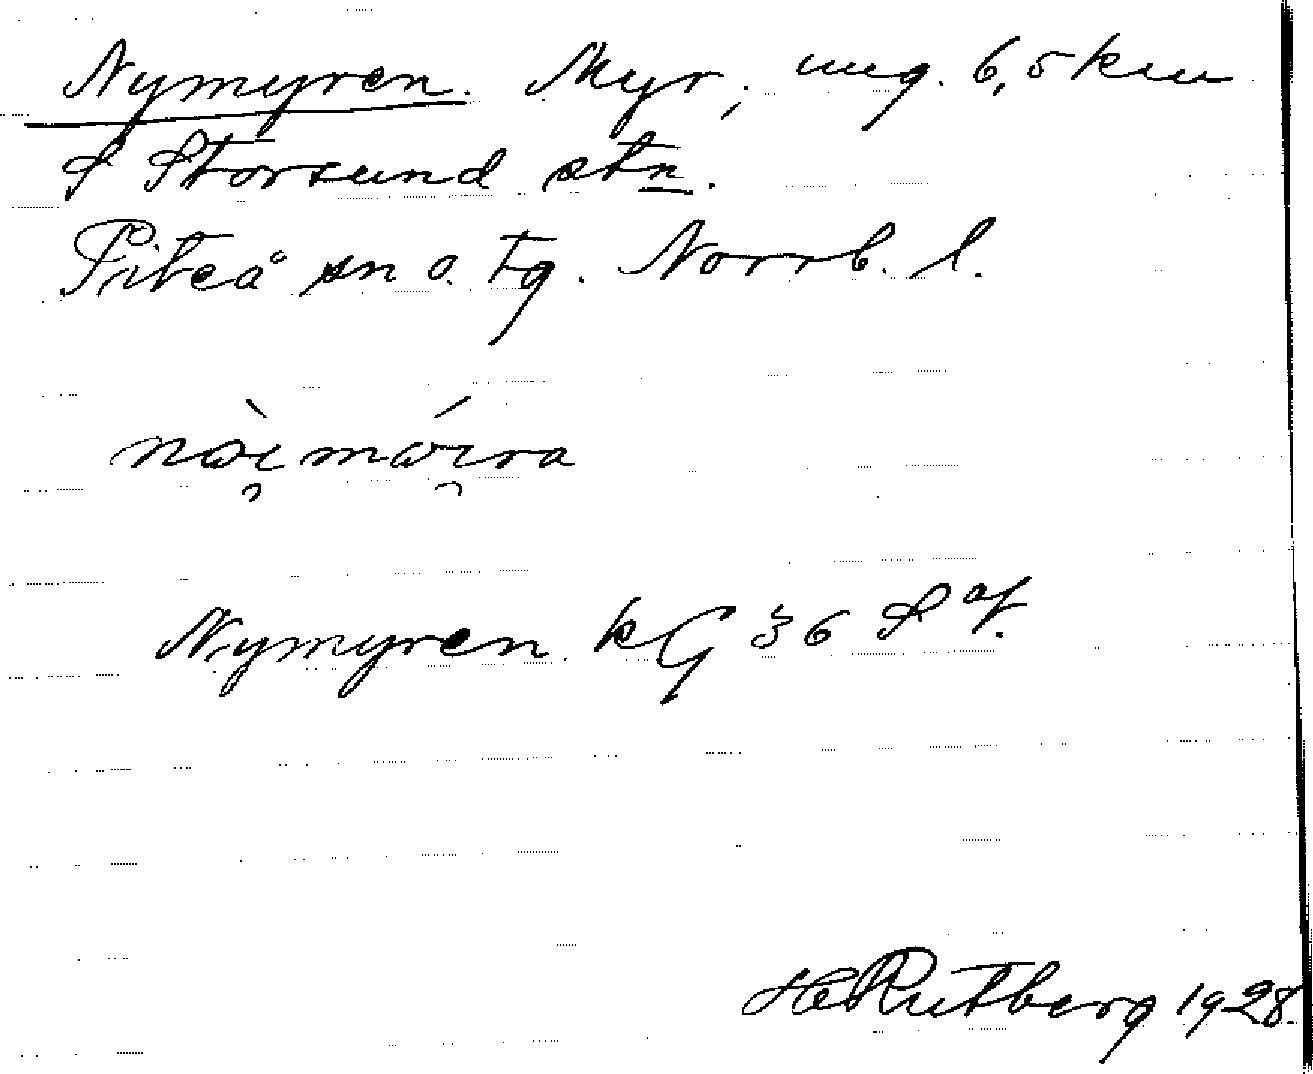 Nymyren. Myr, ung. 6,5 km
S Storsund stn.
Piteå sn o. tg. Norrb. l.
Nymyren kG 36 S af.
HRutberg 1928